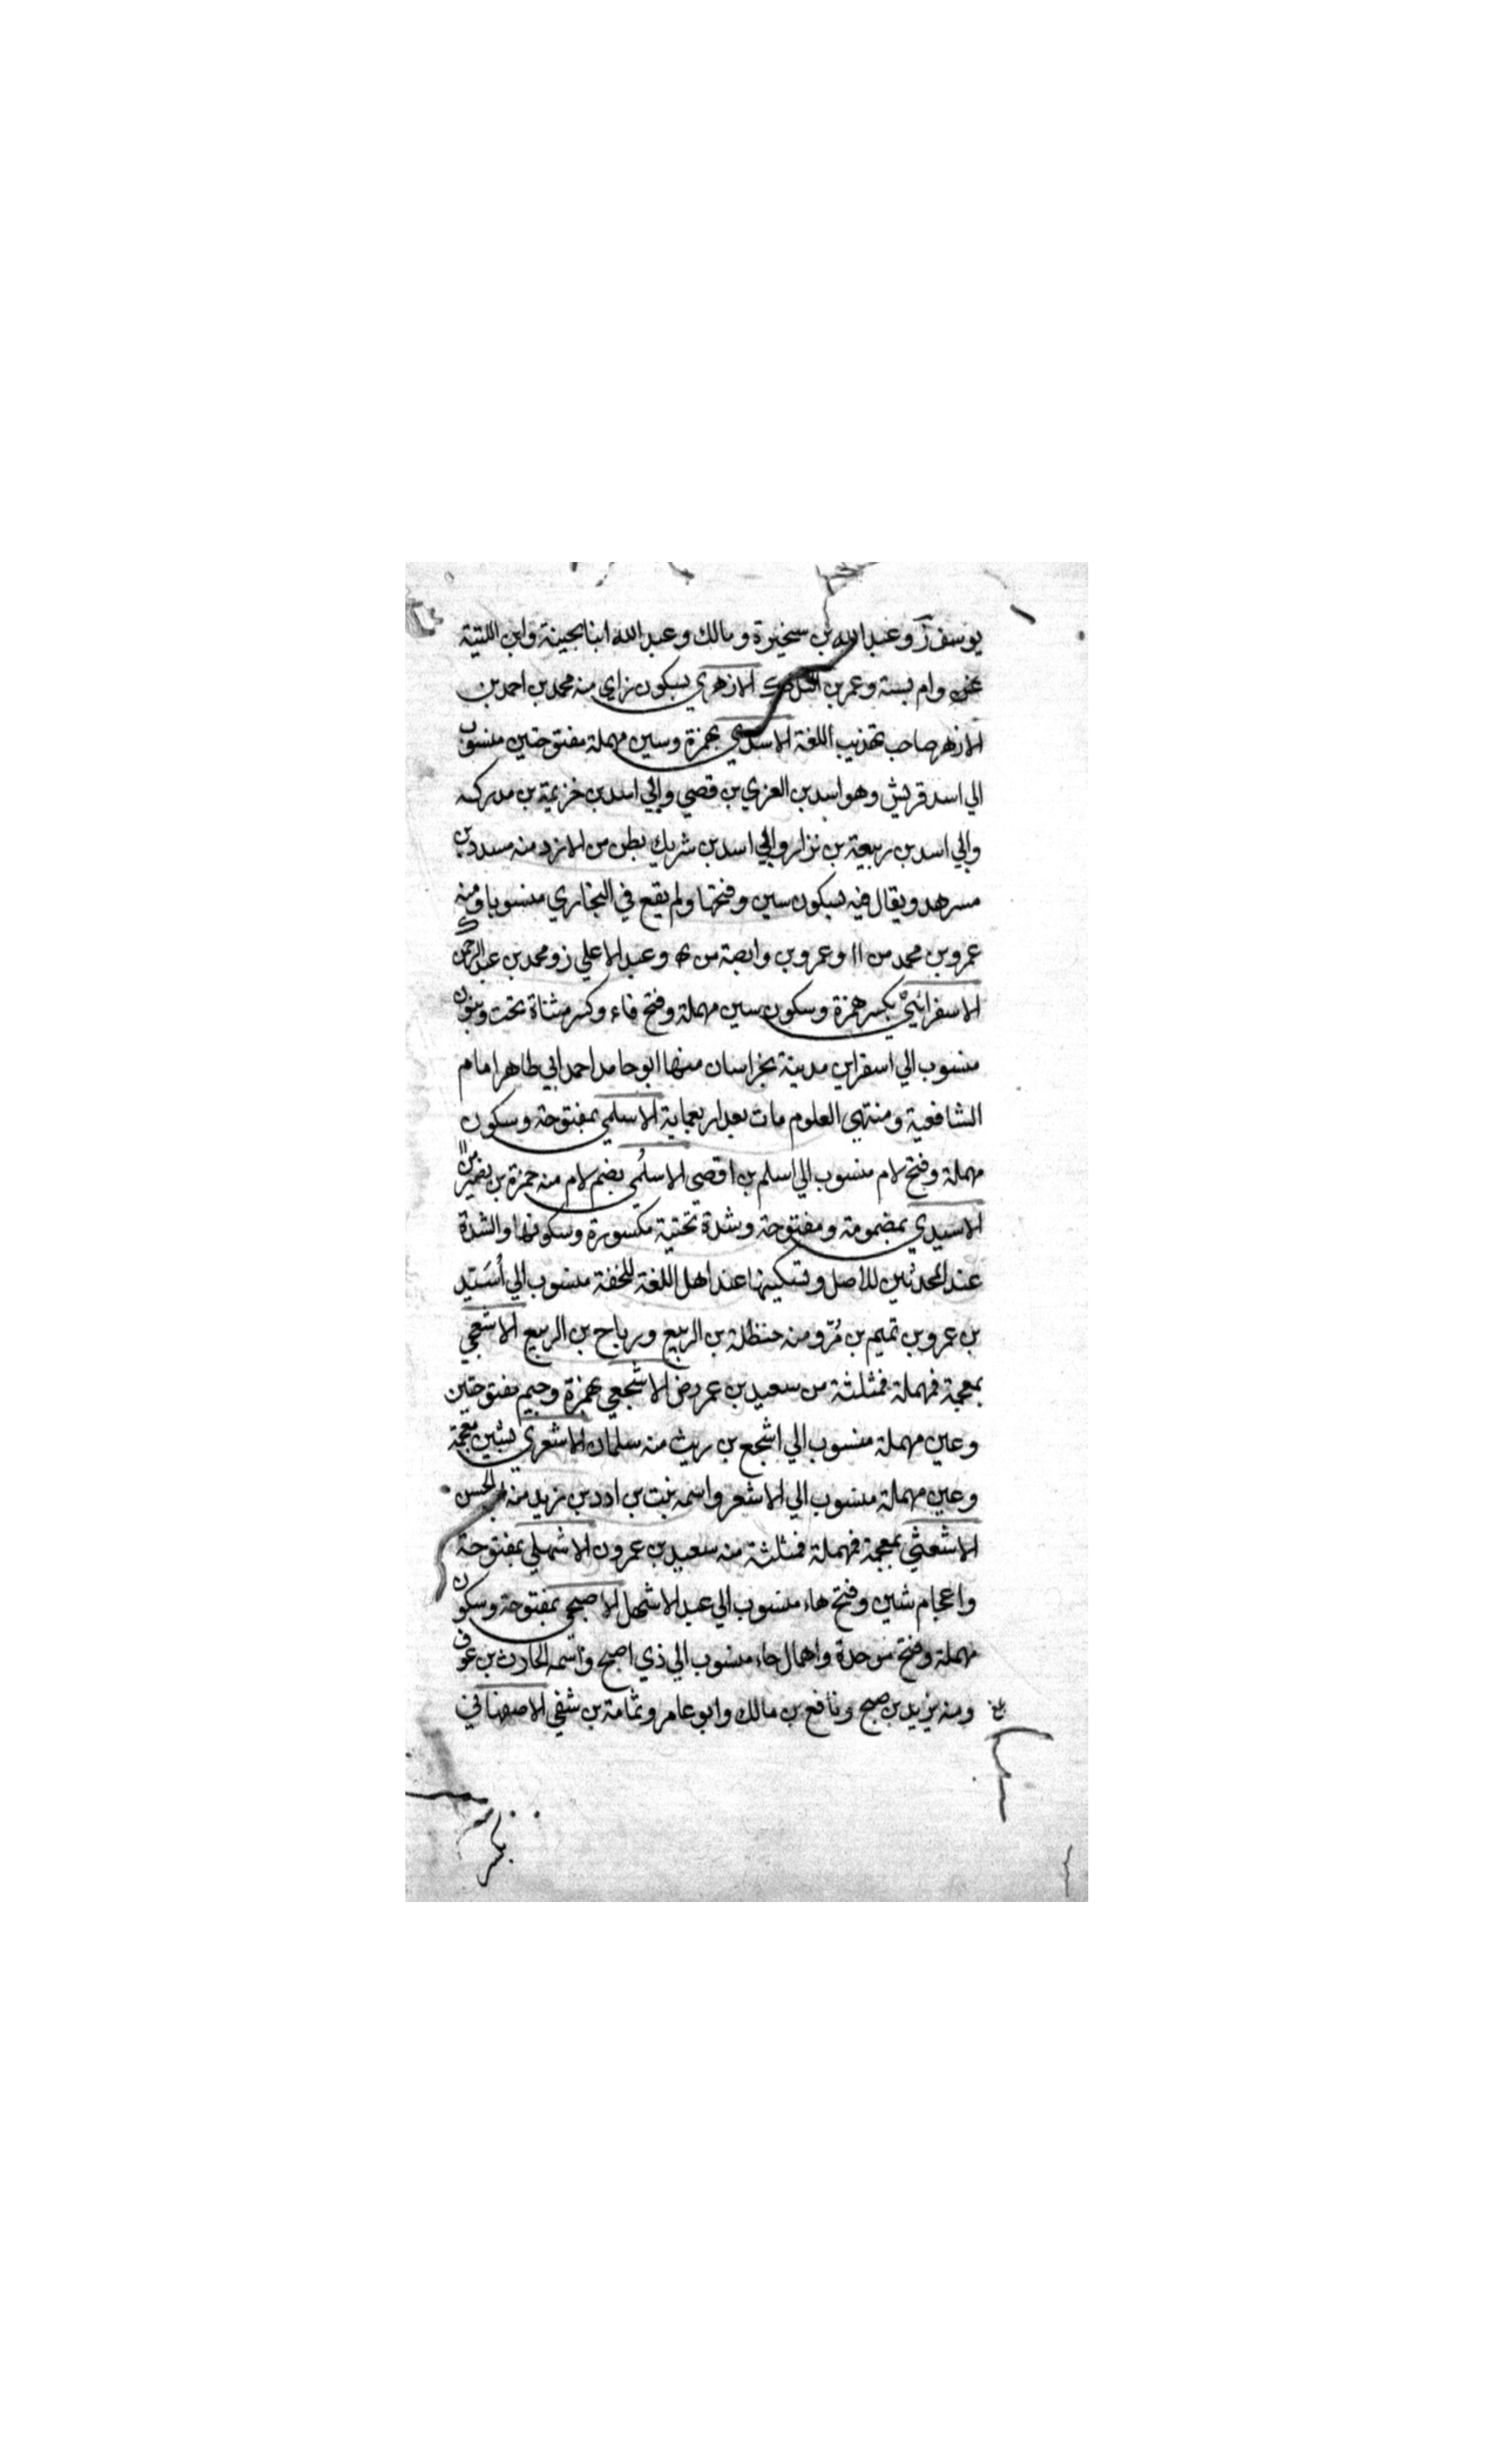 يوسف ز وعبد الله بن سخبرة ومالك وعبد الله ابنا بحينة وابن اللتبية
وام بسنة وعمر بن الازهري بسكون زاي منه محمد بن احمد بن
الازهر صاحب تهذيب اللغة الاسدي بهمزة وسين مهملة مفتوحتين منسوب
الي اسد قريش وهو اسد بن العزي بن قصي والي اسد بن خزيمة بن مدركه
والي اسد بن ربيعة بن نزار والي اسد بن شريك بطن من الازد منه مسدد بن
مسرهد ويقال فيه بسكون سين وفتحها ولم يقع في البخاري منسوبا ومنه
عمرو بن محمد من اا وعمرو بن وابصة من وعبد الاعلي ز ومحمد بن عبد الرحمن
الاسفرائني بكسر همزة وسكون سين مهملة وفتح فاء وكسر مثناة تحت وبنون
منسوب الي اسفراين مدينة بخراسان منها ابو حامد احمد ابي طاهر امام
الشافعية ومنتهي العلوم مات بعد اربعماية الاسلمي بمفتوحة وسكون
مهملة وفتح لام منسوب الي اسلم بن اقصي الاسلُمي بضم لام منه حمزة بن
الاسيدي بمضمومة ومفتوحة وشدة تحتية مكسورة وسكونها والشدة
عند المحدثين للاصل وتسكينها عند اهل اللغة للخفة منسوب الي أُسَيّد
بن عمرو بن تميم بن مُرّ ومنه حنظلة بن الربيع ورباح بن الربيع الاشعجي
بمعجمة فمهملة فمثلثة من سعيد بن عمرو ض الاشجعي بهمزة وجيم مفتوحتين
وعين مهملة منسوب الي اشجع بن ريث منه سلمان الاشعري بشين معجمة
وعين مهملة منسوب الي الاشعر واسمه نبت بن ادد بن زيد منه ابو الحسن
الاشعثي بمعجمة فمهملة فمثلثة منه سعيد بن عمرو ن الاشهلي بمفتوحة
واعجام شين وفتح هاء منسوب الي عبد الاشهل الاصبحي بمفتوحة وسكون
مهملة وفتح موحدة واهمال حاء منسوب الي ذي اصبح واسمه الحارث بن عوف
ومنه يزيد بن صبح ونافع بن مالك وابو عامر وثمامة بن شفي الاصبهاني
بكسر